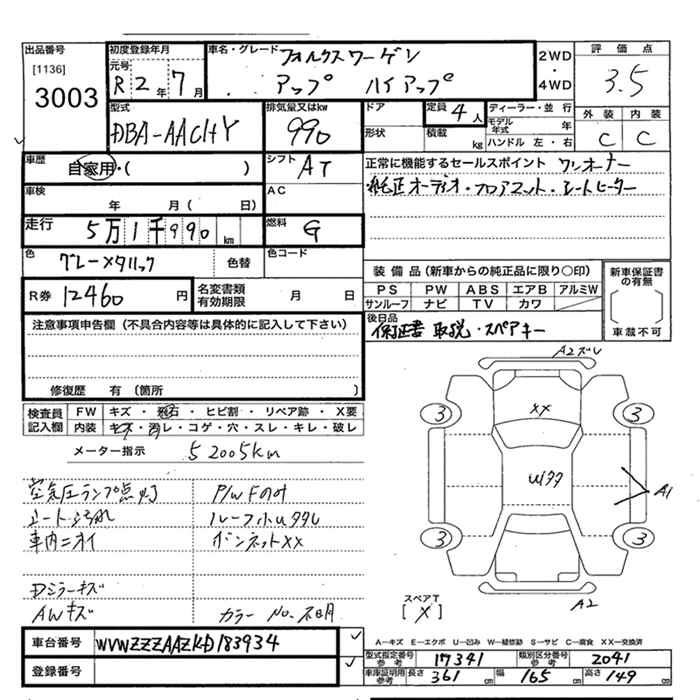 出品番号 初度登録年月 車名・グレード フォルクスワーゲン 2WD・4WD 評価点
[1136] 元号
3003 R2年7月 アップ ハイアップ 3.5
型式 排気量又はkw ドア 定員 4人 ディーラー・並行 外装 内装
DBA-AACHY 990 形状 積載 kg モデル年式 年 ハンドル 左・右 C C
車歴 自家用・( ) シフト AT 正常に機能するセールスポイント ワンオーナー
車検 年 月( 日) AC 純正オーディオ・フロアマット・シートヒーター
走行 5万1千990km 燃料 G
色 グレーメタリック 色替 色コード
装備品(新車からの純正品に限り○印) 新車保証書の有無
R券 12460円 名変書類有効期限 月 日 PS PW ABS エアB アルミW
サンルーフ ナビ TV カワ 車載不可
注意事項申告欄(不具合内容等は具体的に記入して下さい) 後日品 保証書 取説・スペアキー
修復歴 有(箇所 )
A2ズレ
検査員記入欄 FW キズ・飛石・ヒビ割・リペア跡・X要
内装 キズ・汚レ・コゲ・穴・スレ・キレ・破レ
3 XX 3
メーター指示 52005km
Uイタタ
空気圧ランプ点灯 P/WFのみ
A1
シート汚れ ルーフ小Uタタシ
車内ニオイ ボンネットXX
3 3
Dミラーキズ
スペアT [X] A2
AWキズ カラーNo.不明
車台番号 WVWZZZAAZKD183934
A-キズ E-エクボ U-凹み W-補修跡 S-サビ C-腐食 XX-交換済
登録番号 型式指定番号参考 17341 類別区分番号参考 2041
車庫証明用参考 長さ 361cm 幅 165cm 高さ 149cm